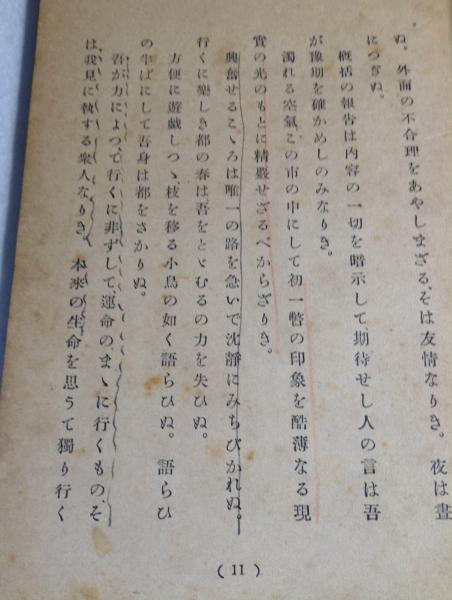 ぬ。外面の不合理をあやしまざるそは友情なりき。夜は晝
につぎぬ。
概括の報告は内容の一切を暗示して、期待せし人の言は吾
が豫期を確かめしのみなりき。
濁れる空氣この市の中にして初一瞥の印象を酷薄なる現
實の光のもとに精嚴せざるべからざりき。
興奮せるこゝろは唯一の路を急いで沈靜にみちびかれぬ。
行くに樂しき都の春は吾をとゞむるの力を失ひぬ。
方便に遊戯しつゝ枝を移る小鳥の如く語らひぬ。語らひ
の半ばにして吾身は都をさかりぬ。
吾が力によつて行くに非ずして、運命のまゝに行くもの、そ
は我見に執する衆人なりき。本來の生命を思うて獨り行く
(11)